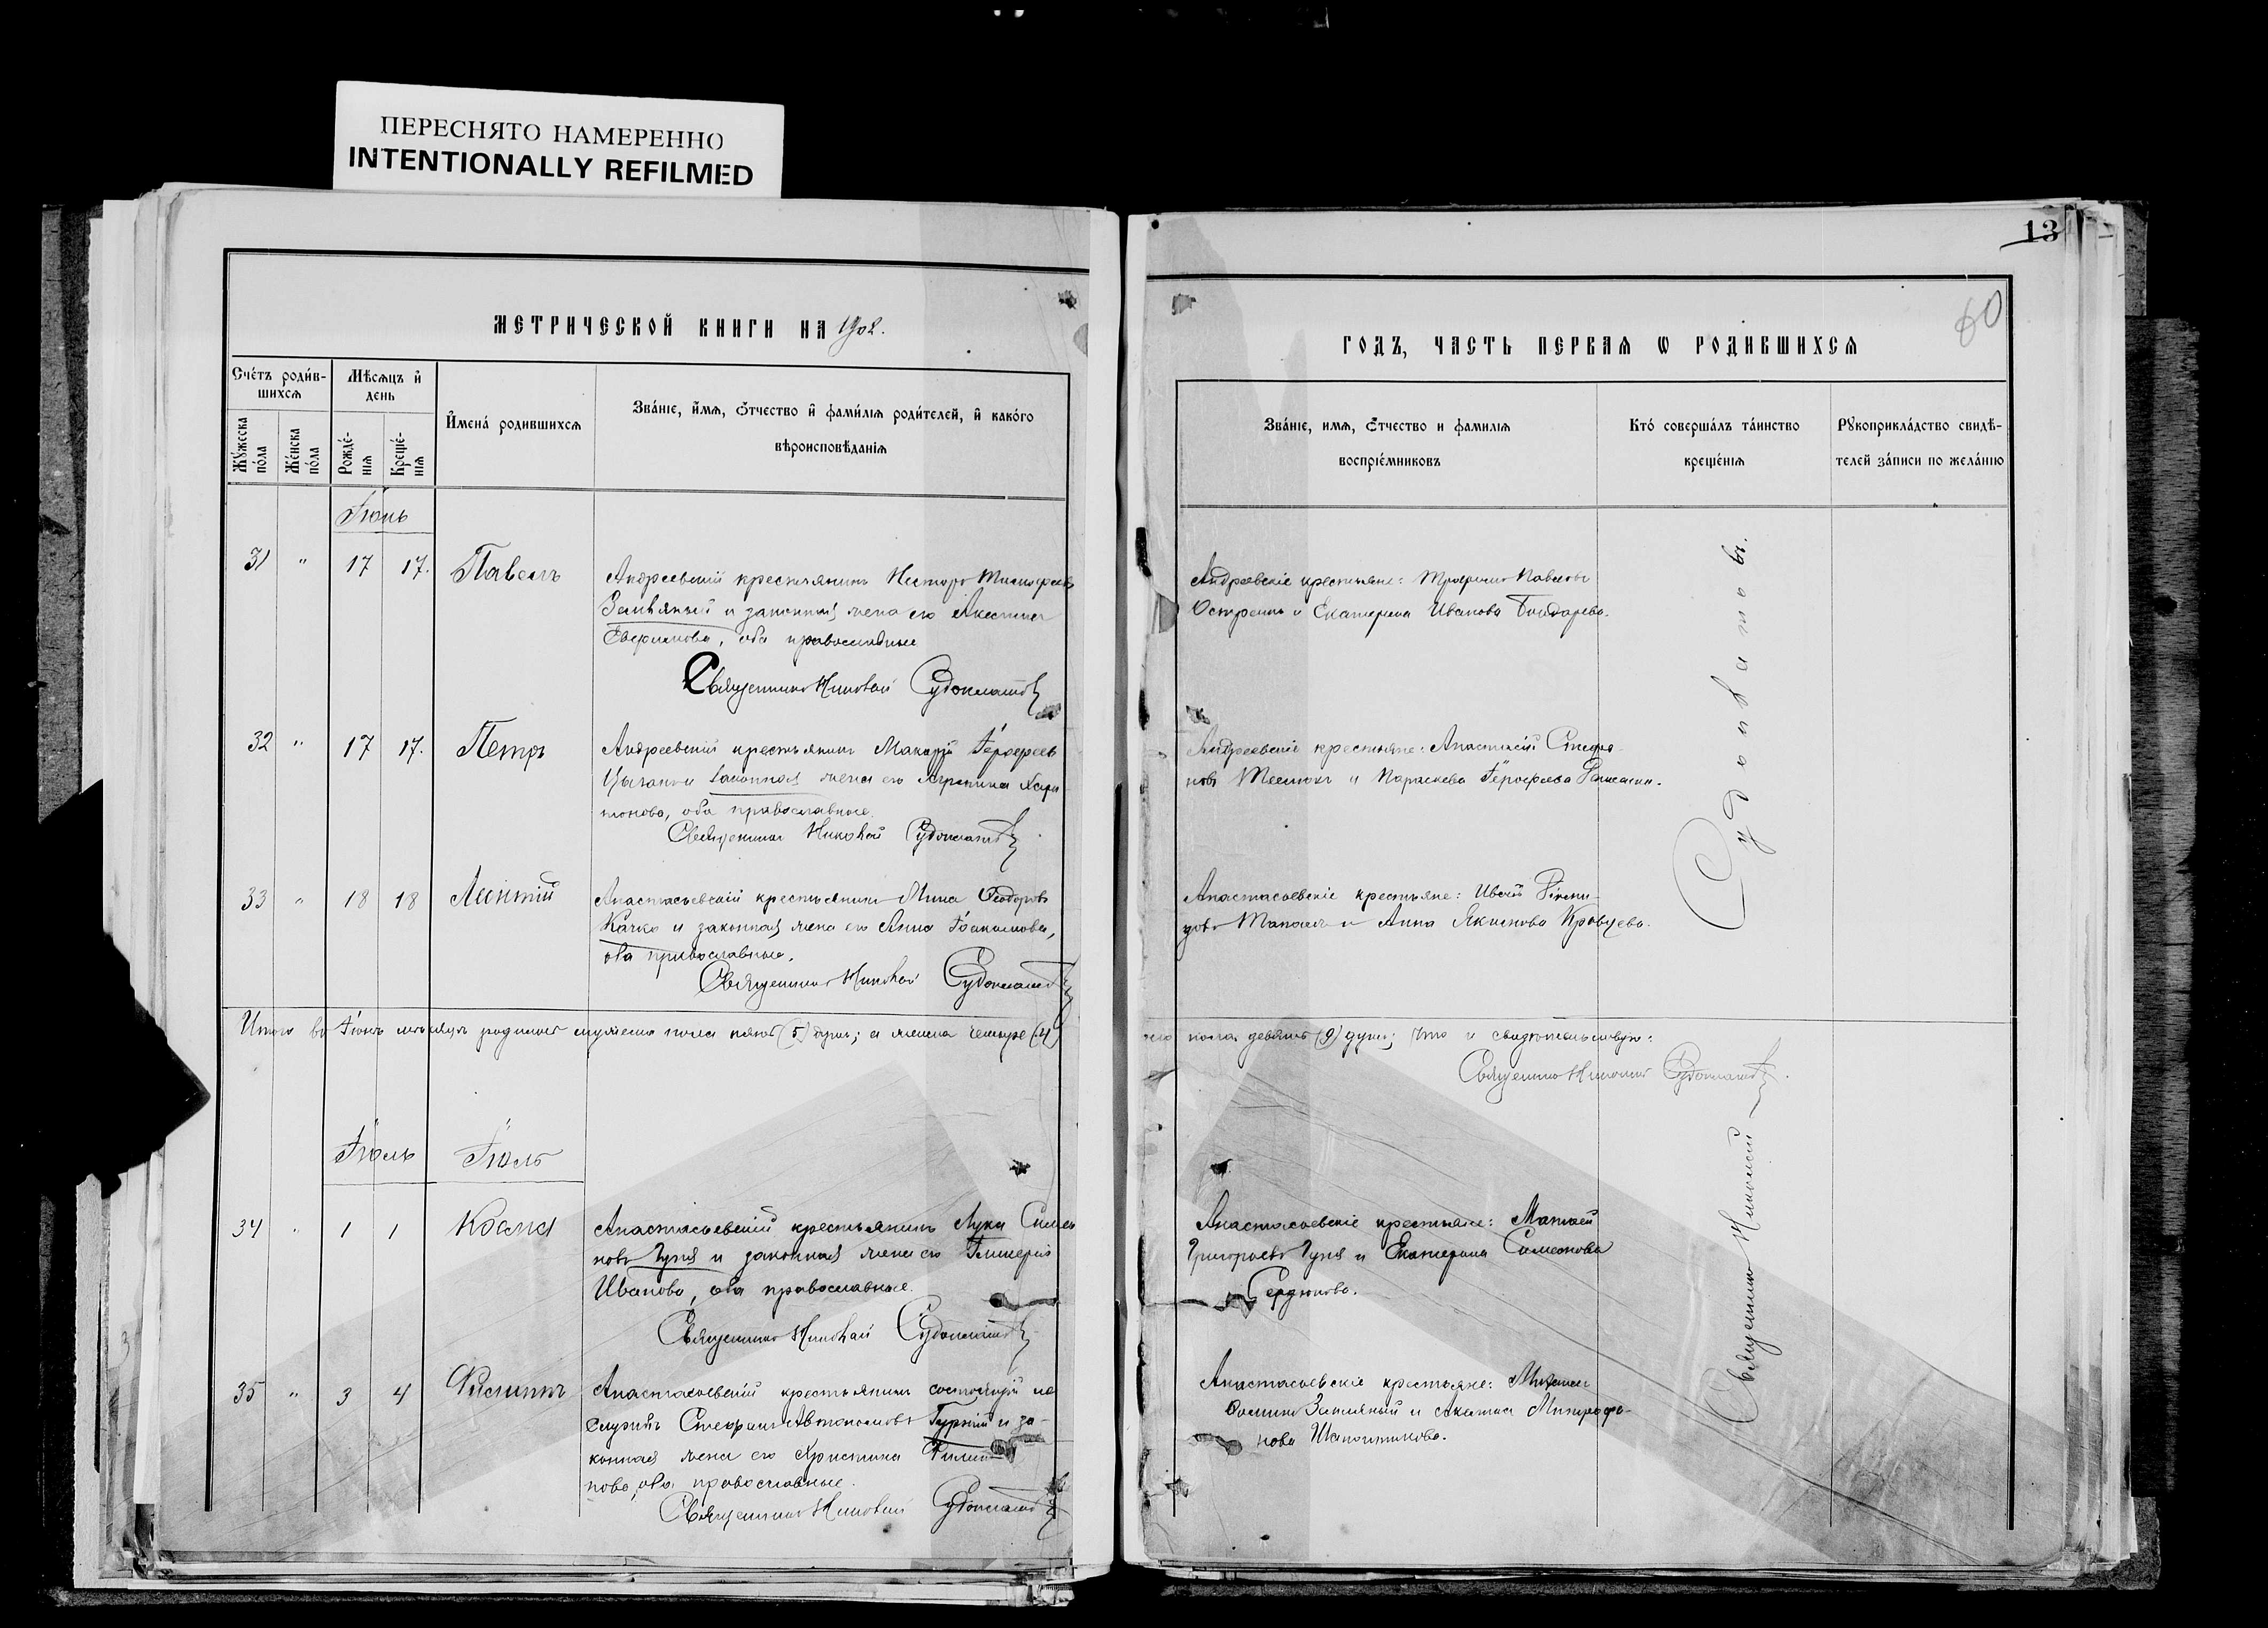 ПЕРЕСНЯТО НАМЕРЕННО
INTENTIONALLY REFILMED
13
60
МЕТРИЧЕСКОЙ КНИГИ НА 1902.
ГОДЪ, ЧАСТЬ ПЕРВАЯ Ѡ РОДИВШИХСЯ
Счётъ роди́в-
шихся
Му́жеска по́ла
Же́нска по́ла
Мѣ́сяцъ и
день
Рожде́-
нія
Креще́-
нія
Имена́ родившихся
Зва́ніе, и́мя, ѻ́тчество и фами́лія роди́телей, и како́го
вѣроисповѣ́данія
Зва́ніе, имя, ѻ́тчество и фамилія
воспріе́мниковъ
Кто́ соверша́лъ та́инство
креще́нія
Рꙋкоприкла́дство свидѣ́-
телей за́писи по жела́нію
Іюнь
31 " 17 17. Павелъ
Андреевскій крестьянинъ Несторъ
и законная жена его
оба православные
Священникъ Николай Судоплатовъ
Андреевскіе крестьяне: Павловъ
и Екатерина Иванова Бондарева.
32 " 17 17. Петръ
Андреевскій крестьянинъ Макарій Іерофеевъ
Цыганъ и законная жена его Хари-
тонова, оба православные.
Священникъ Николай Судоплатовъ
Андреевскіе крестьяне: Анастасій Стефа-
новъ и Параскева Іерофеева
33 " 18 18 Леонтій
Анастасьевскій крестьянинъ Мина Ѳеодоровъ
Качко и законная жена его Анна
оба православные.
Священникъ Николай Судоплатовъ
Анастасьевскіе крестьяне:
и Анна Якимова Кравцева.
Итого въ Іюнѣ мѣсяцѣ родилось мужеска пола пять (5) душъ; а женска четыре (4)
пола девять (9) душъ; что и свидѣтельствую:
Священникъ Николай Судоплатовъ.
Іюль Іюль
34 " 1 1 Косма
Анастасьевскій крестьянинъ Лука Симео-
новъ Гуня и законная жена его Гликерія
Иванова, оба православные.
Священникъ Николай Судоплатовъ
Анастасьевскіе крестьяне: Матвей
Григорьевъ Гуня и Екатерина Симеонова
Сердюкова.
35 " 3 4 Филиппъ
Анастасьевскій крестьянинъ состоящій на
службѣ Стефанъ Автономовъ и за-
конная жена его Христина Филип-
пова, оба православные.
Священникъ Николай Судоплатовъ
Анастасьевскіе крестьяне: Михаилъ
и Акилина Митрофа-
нова Шапошникова.
Священникъ Николай
Судоплатовъ.